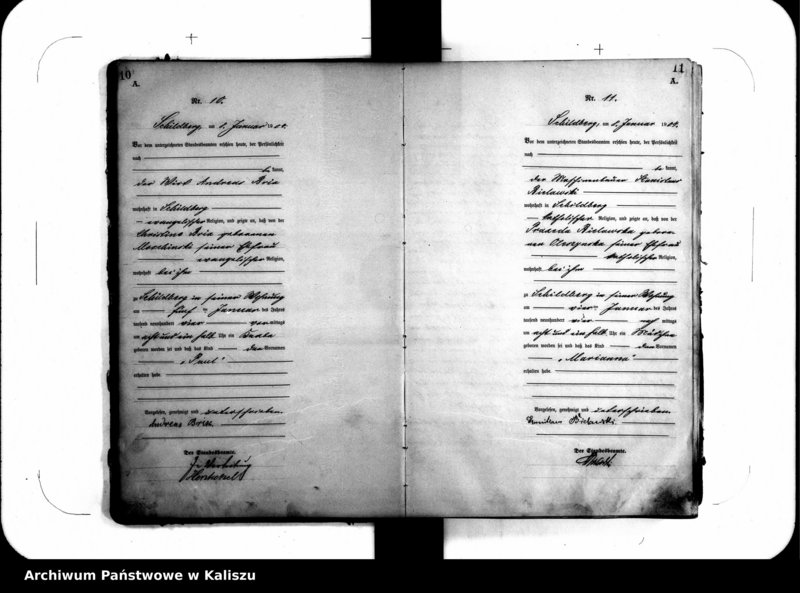 10
A.
Nr. 10.
Schildberg, am 5. Januar 1904.
Vor dem unterzeichneten Standesbeamten erschien heute, der Persönlichkeit
nach
kannt,
der Wirt Andreas
wohnhaft in Schildberg
evangelischer Religion, und zeigte an, daß von der
Christine geborenen
seiner Ehefrau
evangelischer Religion,
wohnhaft bei ihm
zu Schildberg in seiner Wohnung
am fünf Januar des Jahres
tausend neunhundert vier vormittags
um acht und ein halb Uhr ein Knabe
geboren worden sei und daß das Kind den Vornamen
"Paul"
erhalten habe.
Vorgelesen, genehmigt und unterschrieben.
Andreas
Der Standesbeamte.
In Vertretung
11
A.
Nr. 11.
Schildberg, am 5. Januar 1904.
Vor dem unterzeichneten Standesbeamten erschien heute, der Persönlichkeit
nach
kannt,
der Maschinenbauer Stanislaus
Bielawski
wohnhaft in Schildberg
katholischer Religion, und zeigte an, daß von der
Bielawska gebore-
nen seiner Ehefrau
katholischer Religion,
wohnhaft bei ihm
zu Schildberg in seiner Wohnung
am vier Januar des Jahres
tausend neunhundert vier nachmittags
um acht und ein halb Uhr ein Mädchen
geboren worden sei und daß das Kind den Vornamen
"Marianna"
erhalten habe.
Vorgelesen, genehmigt und unterschrieben.
Bielawski
Der Standesbeamte.
Archiwum Państwowe w Kaliszu